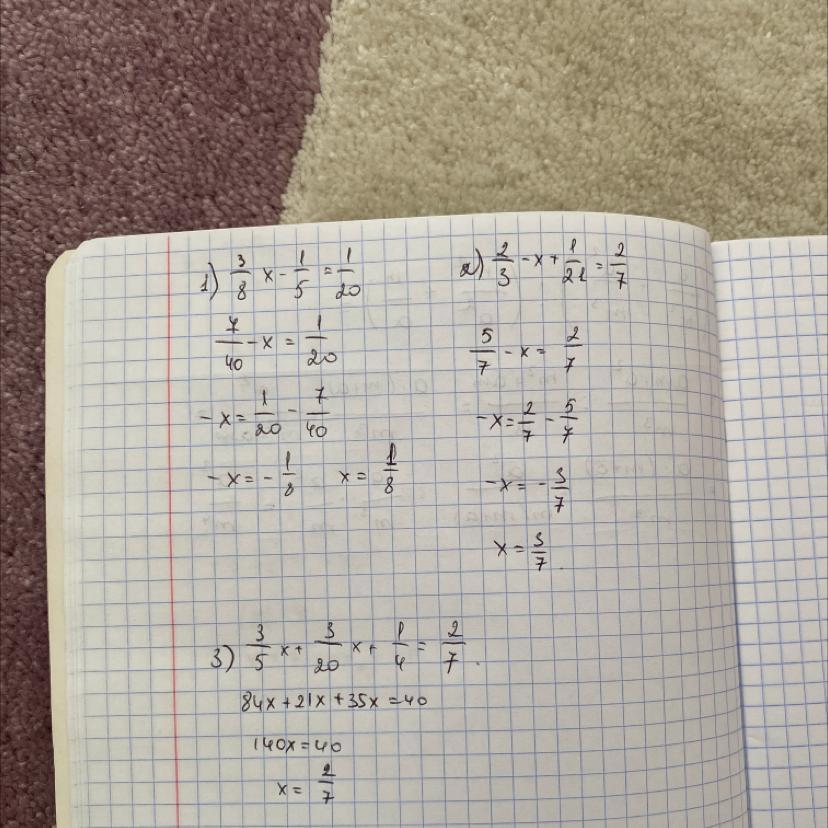 1) 3/8 x - 1/5 = 1/20
7/40 - x = 1/20
-x = 1/20 - 7/40
-x = -1/8 x = 1/8
2) 2/3 - x + 1/21 = 2/7
5/7 - x = 2/7
-x = 2/7 - 5/7
-x = -3/7
x = 3/7.
3) 3/5 x + 3/20 x + 1/4 = 2/7.
84x + 21x + 35x = 40
140x = 40
x = 2/7